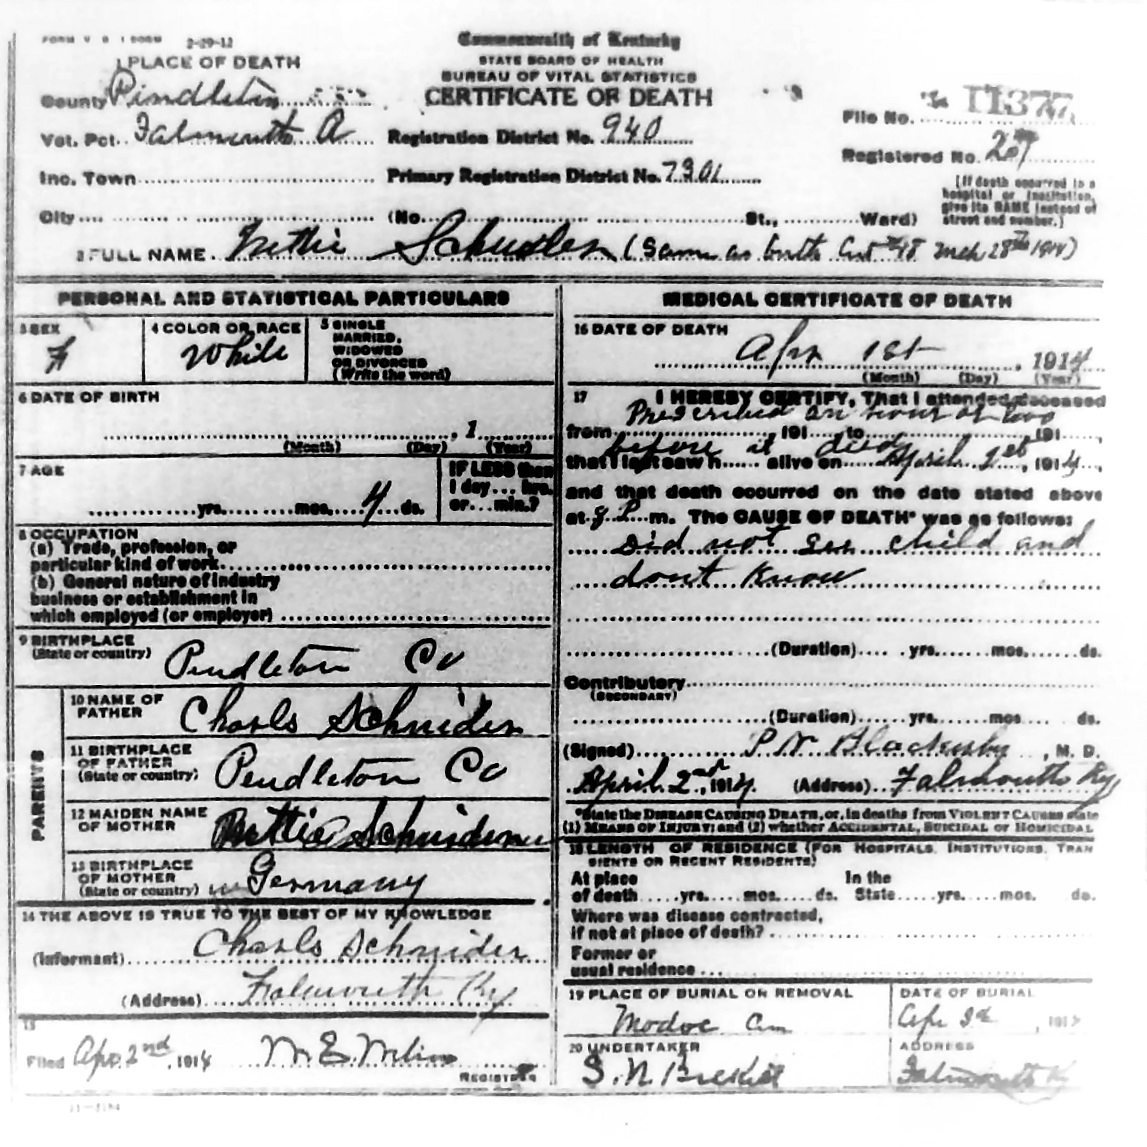 FORM V. S. 2-29-12
Commonwealth of Kentucky
STATE BOARD OF HEALTH
BUREAU OF VITAL STATISTICS
CERTIFICATE OF DEATH
1 PLACE OF DEATH
County Pindleton
Vot. Pct. Falmouth A
Inc. Town
City (No. St., Ward)
Registration District No. 940
Primary Registration District No. 7301
File No. 11377
Registered No. 29
[If death occurred in a hospital or institution, give its NAME instead of street and number.]
2 FULL NAME Nettie Schneider (Same as birth Cert #48 Mch 28th 1914)
PERSONAL AND STATISTICAL PARTICULARS
3 SEX F
4 COLOR OR RACE White
5 SINGLE
MARRIED,
WIDOWED
OR DIVORCED
(Write the word)
6 DATE OF BIRTH
, 1
(Month) (Day) (Year)
7 AGE
yrs. mos. 4 ds.
IF LESS than
1 day... hrs.
or... min.?
8 OCCUPATION
(a) Trade, profession, or
particular kind of work
(b) General nature of industry
business or establishment in
which employed (or employer)
9 BIRTHPLACE
(State or country) Pendleton Co
PARENTS
10 NAME OF
FATHER Charls Schneider
11 BIRTHPLACE
OF FATHER
(State or country) Pendleton Co
12 MAIDEN NAME
OF MOTHER Bettie Schneider
13 BIRTHPLACE
OF MOTHER
(State or country) in Germany
14 THE ABOVE IS TRUE TO THE BEST OF MY KNOWLEDGE
(Informant) Charls Schneider
(Address) Falmouth Ky
15
Filed Apr. 2nd, 1914
REGISTRAR
MEDICAL CERTIFICATE OF DEATH
16 DATE OF DEATH
Apr 1st, 1914
(Month) (Day) (Year)
17 I HEREBY CERTIFY, That I attended deceased
Prescribed an hour or two
from 191 to 191
before it died
that I last saw h alive on April 1st, 1914,
and that death occurred on the date stated above
at 8 P. m. The CAUSE OF DEATH* was as follows:
Did not see child and
dont know
(Duration) yrs. mos. ds.
Contributory
(SECONDARY)
(Duration) yrs. mos ds.
(Signed) P N Blackerby, M. D.
April 2nd, 1914 (Address) Falmouth Ky
*State the DISEASE CAUSING DEATH, or, in deaths from VIOLENT CAUSES state
(1) MEANS OF INJURY; and (2) whether ACCIDENTAL, SUICIDAL or HOMICIDAL
18 LENGTH OF RESIDENCE (FOR HOSPITALS, INSTITUTIONS, TRAN
SIENTS OR RECENT RESIDENTS)
At place In the
of death yrs. mos. ds. State yrs. mos. ds.
Where was disease contracted,
if not at place of death?
Former or
usual residence
19 PLACE OF BURIAL OR REMOVAL
Modoc Cm
DATE OF BURIAL
Apr 3d, 191
20 UNDERTAKER
S. N. Beckett
ADDRESS
Falmouth Ky